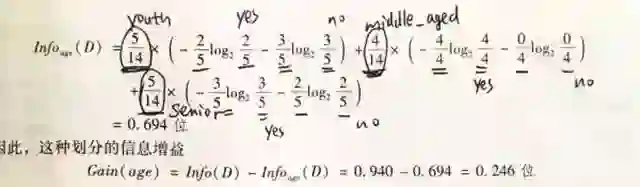 youth yes no middle_aged
Info_age(D) = 5/14 × ( - 2/5 log₂ 2/5 - 3/5 log₂ 3/5 ) + 4/14 × ( - 4/4 log₂ 4/4 - 0/4 log₂ 0/4 )
yes no
+ 5/14 × ( - 3/5 log₂ 3/5 - 2/5 log₂ 2/5 )
senior= yes no
= 0.694 位
因此，这种划分的信息增益
Gain(age) = Info(D) - Info_age(D) = 0.940 - 0.694 = 0.246 位